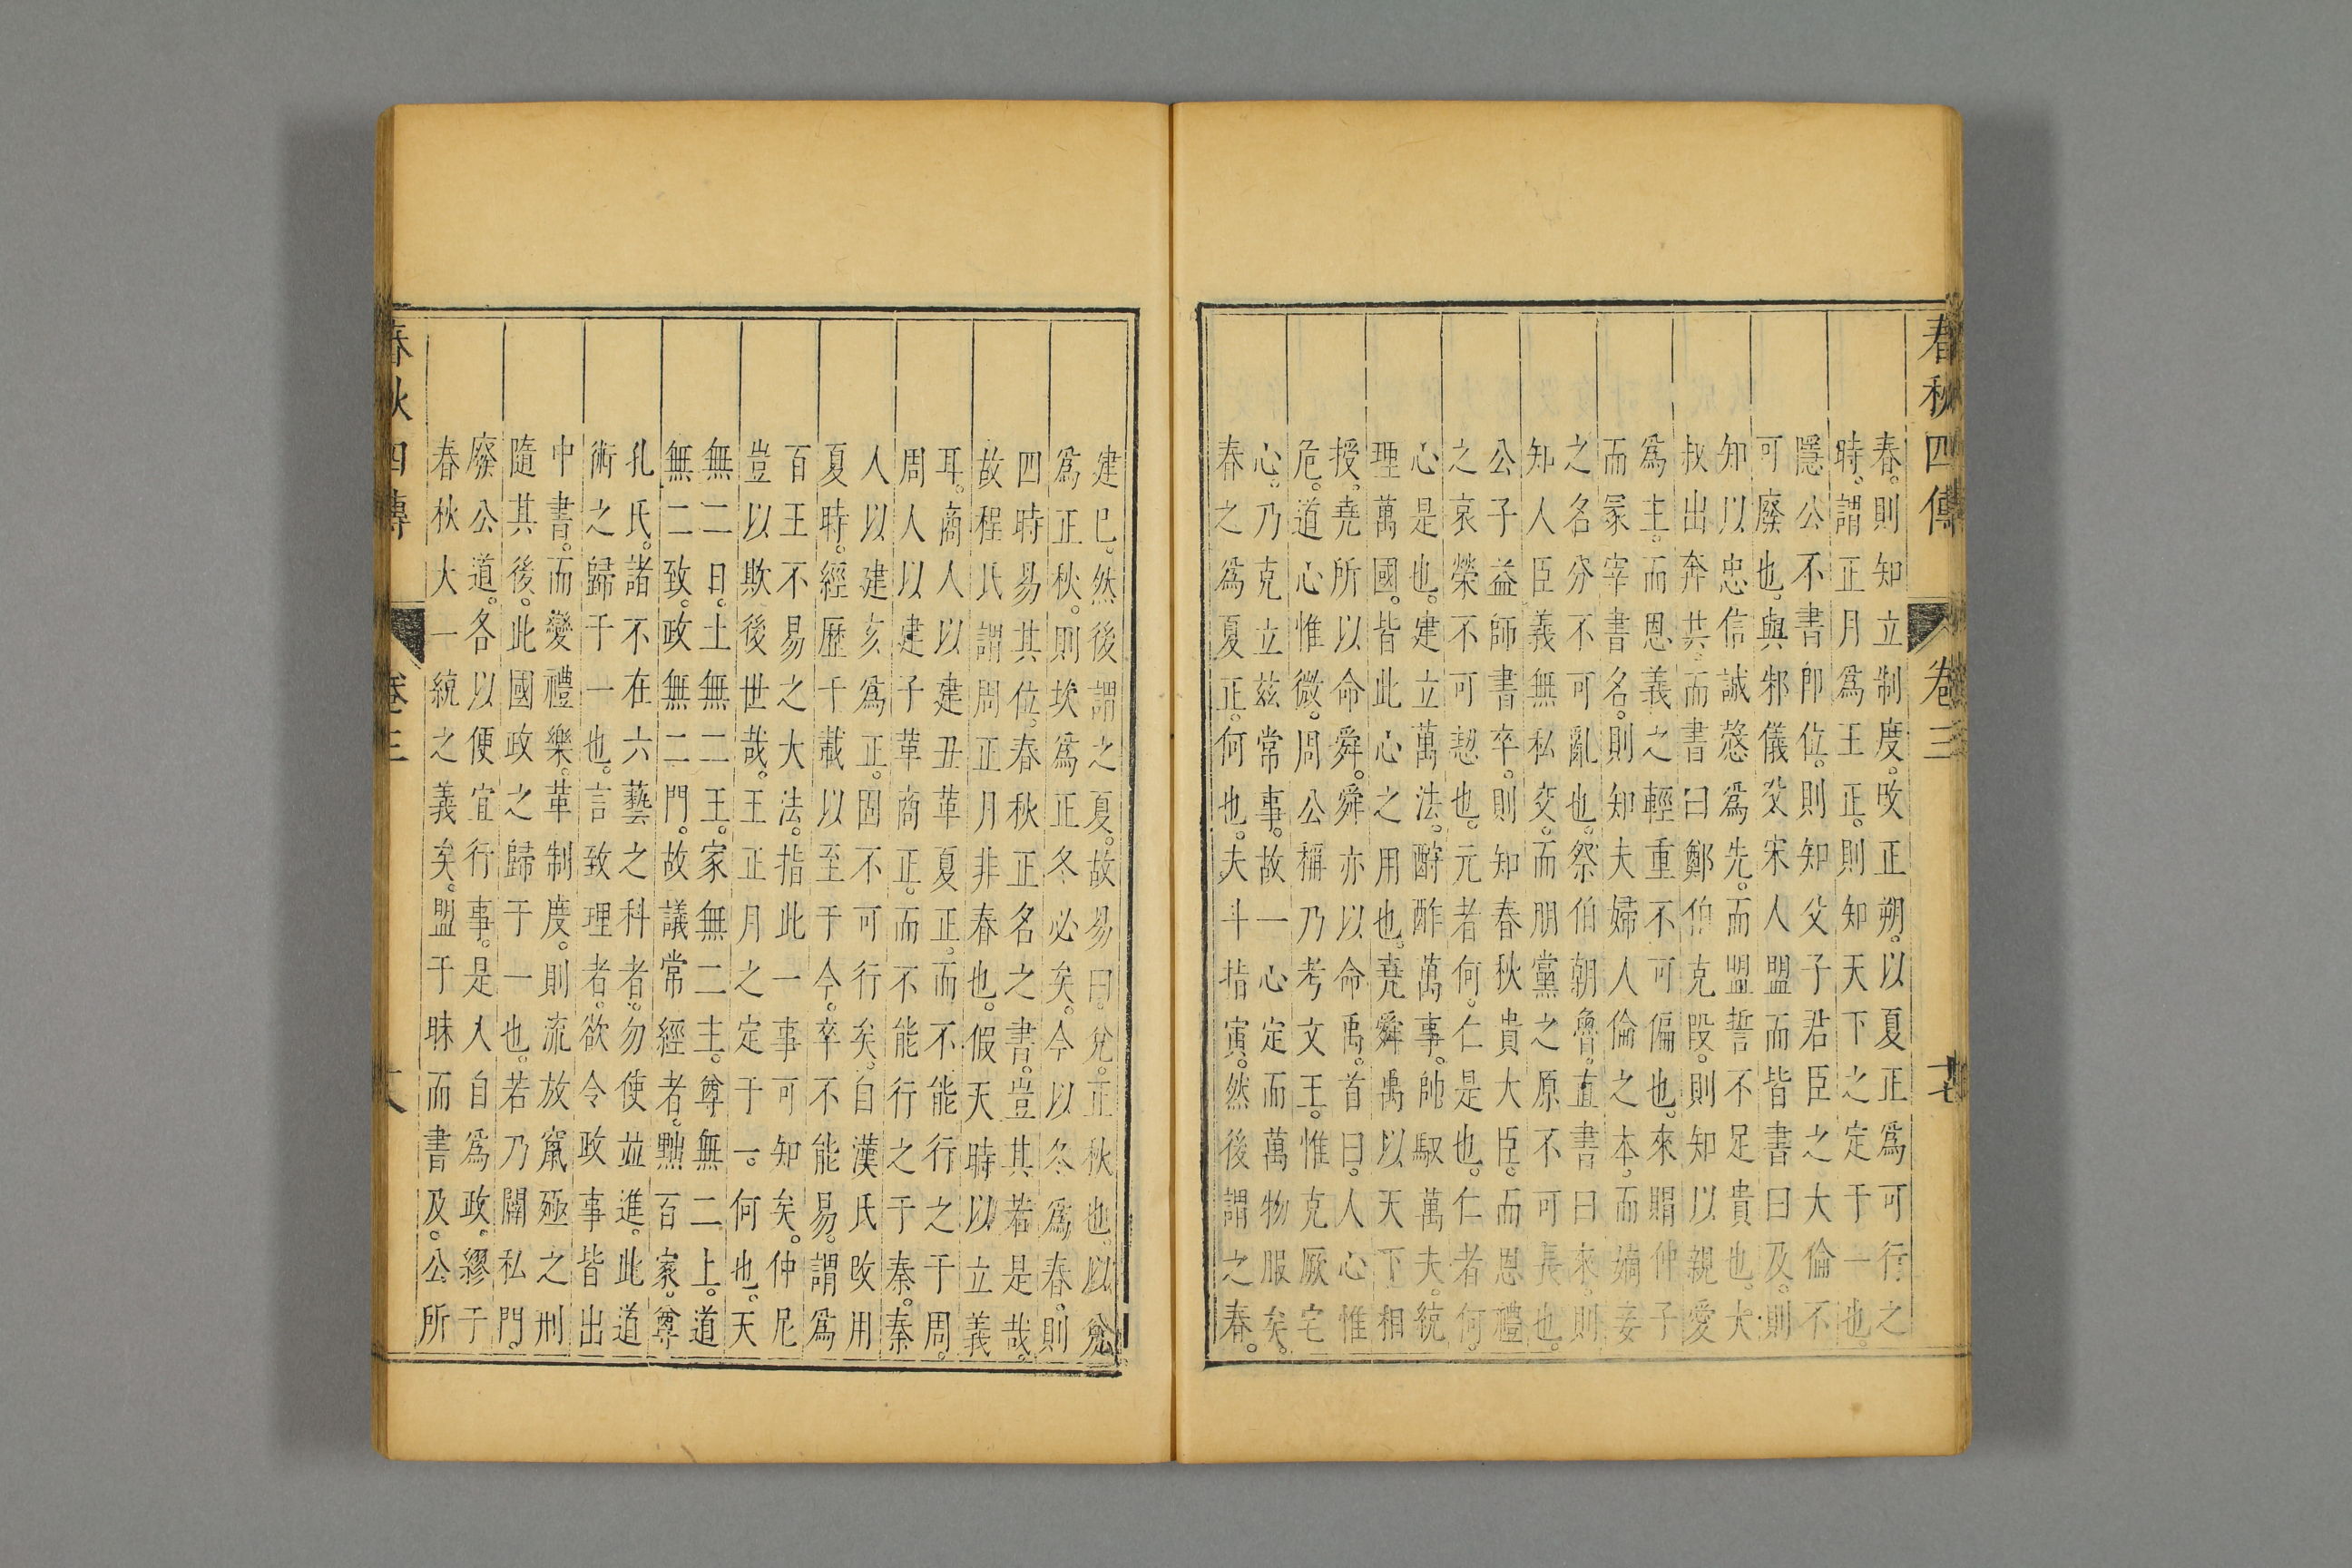 春秋四傳 卷三 十七
春。則知立制度。改正朔。以夏正爲可行之
時。謂正月爲王正。則知天下之定于一也。
隱公不書即位。則知父子君臣之大倫不
可廢也。與邾儀父宋人盟而皆書曰及。則
知以忠信誠慤爲先。而盟誓不足貴也。大
叔出奔共。而書曰鄭伯克段。則知以親愛
爲主。而恩義之輕重不可偏也。來賵仲子
而冢宰書名。則知夫婦人倫之本。而嫡妾
之名分不可亂也。祭伯朝魯。直書曰來。則
知人臣義無私交。而朋黨之原不可長也。
公子益師書卒。則知春秋貴大臣。而恩禮
之哀榮不可恝也。元者何。仁是也。仁者何。
心是也。建立萬法。酹酢萬事。帥馭萬夫。統
理萬國。皆此心之用也。堯舜禹以天下相
授。堯所以命舜。舜亦以命禹。首曰。人心惟
危。道心惟微。周公稱乃考文王。惟克厥宅
心。乃克立兹常事。故一心定而萬物服矣。
春之爲夏正。何也。夫斗指寅。然後謂之春。
建巳。然後謂之夏。故易曰。兌。正秋也。以兌
爲正秋。則坎爲正冬必矣。今以冬爲春。則
四時易其位。春秋正名之書。豈其若是哉。
故程氏謂周正月非春也。假天時以立義
耳。商人以建丑革夏正。而不能行之于周。
周人以建子革商正。而不能行之于秦。秦
人以建亥爲正。固不可行矣。自漢氏改用
夏時。經歷千載。以至于今。卒不能易。謂爲
百王不易之大法。指此一事可知矣。仲尼
豈以欺後世哉。王正月之定于一。何也。天
無二日。土無二王。家無二主。尊無二上。道
無二致。政無二門。故議常經者。黜百家。尊
孔氏。諸不在六藝之科者。勿使並進。此道
術之歸于一也。言致理者。欲令政事皆出
中書。而變禮樂。革制度。則流放竄殛之刑
隨其後。此國政之歸于一也。若乃闢私門。
廢公道。各以便宜行事。是人自爲政。繆于
春秋大一統之義矣。盟于眛而書及。公所
春秋四傳 卷三